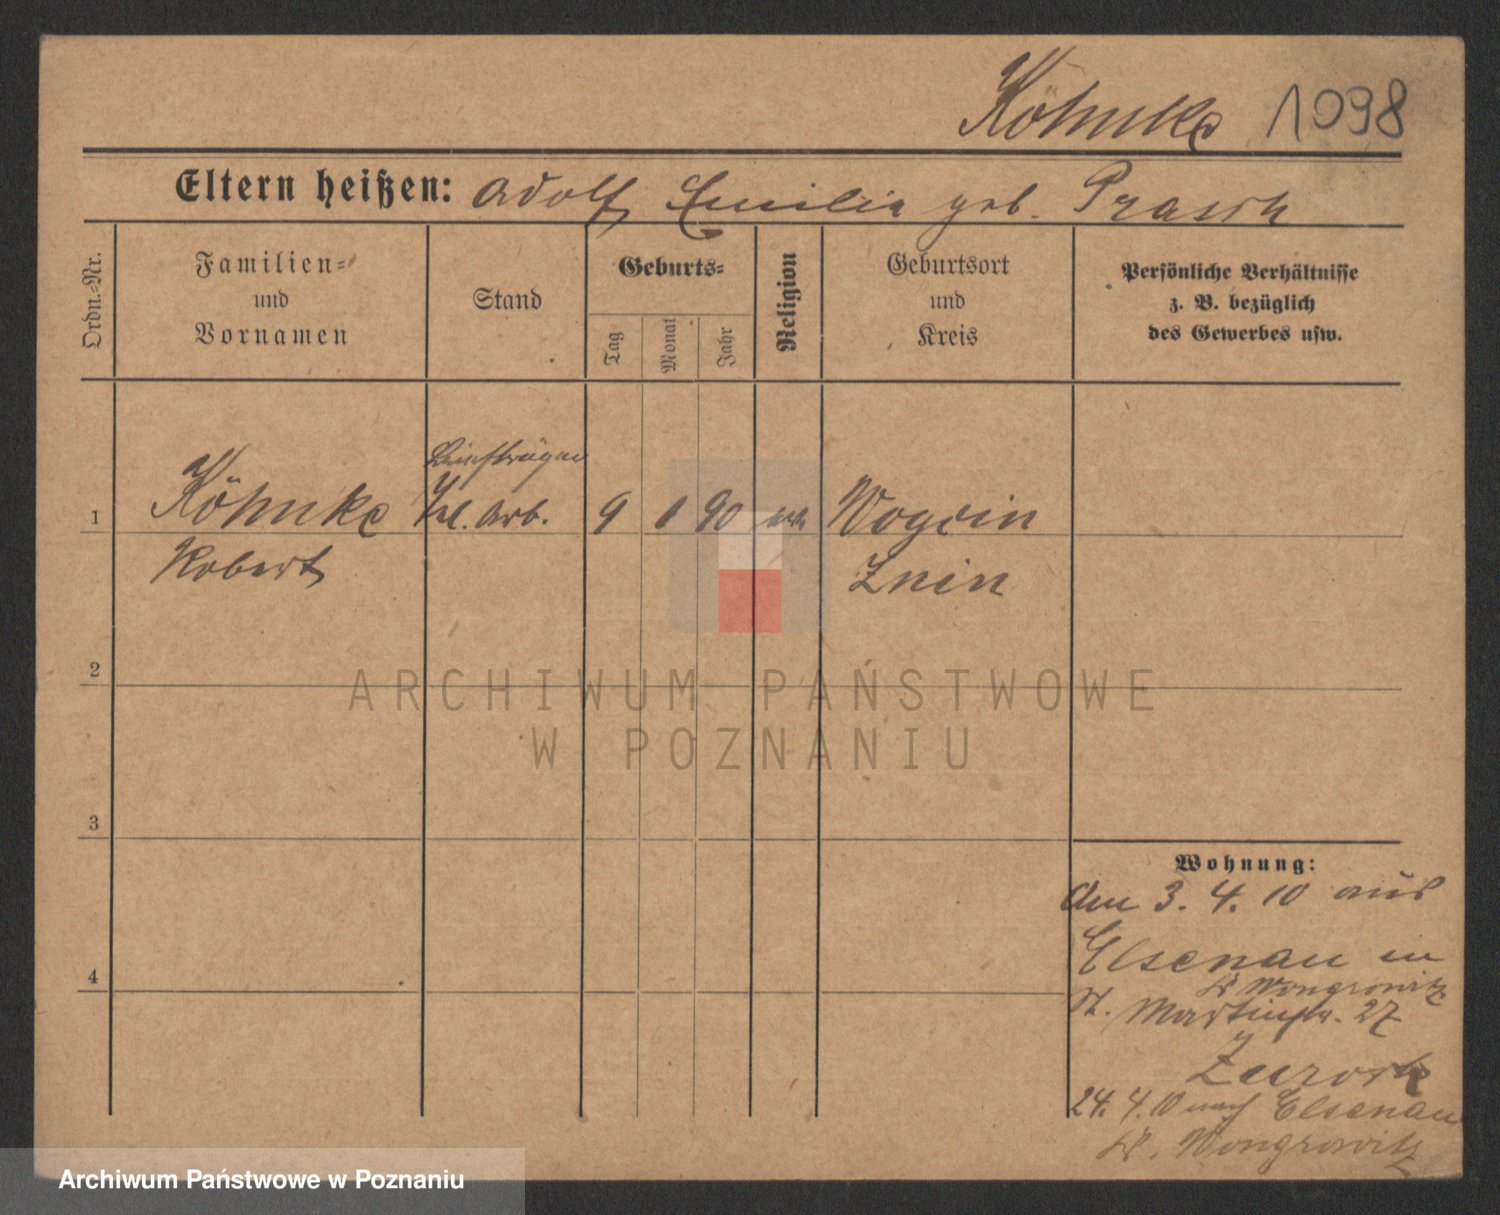 Köhnke 1098
Eltern heißen: Adolf Emilie geb. Prasch
Ordn.=Nr.
Familien=
und
Vornamen
Stand
Geburts=
Tag
Monat
Jahr
Religion
Geburtsort
und
Kreis
Persönliche Verhältnisse
z. B. bezüglich
des Gewerbes usw.
1
Köhnke
Robert
Briefträger
Arb.
9 1 90
Znin
2
3
4
ARCHIWUM PAŃSTWOWE
W POZNANIU
Wohnung:
Am 3. 4. 10 aus
Elsenau in
Kr Wongrowitz
St. Martinstr. 27
Zurück
24. 4. 10 nach Elsenau
Kr. Wongrowitz
Archiwum Państwowe w Poznaniu